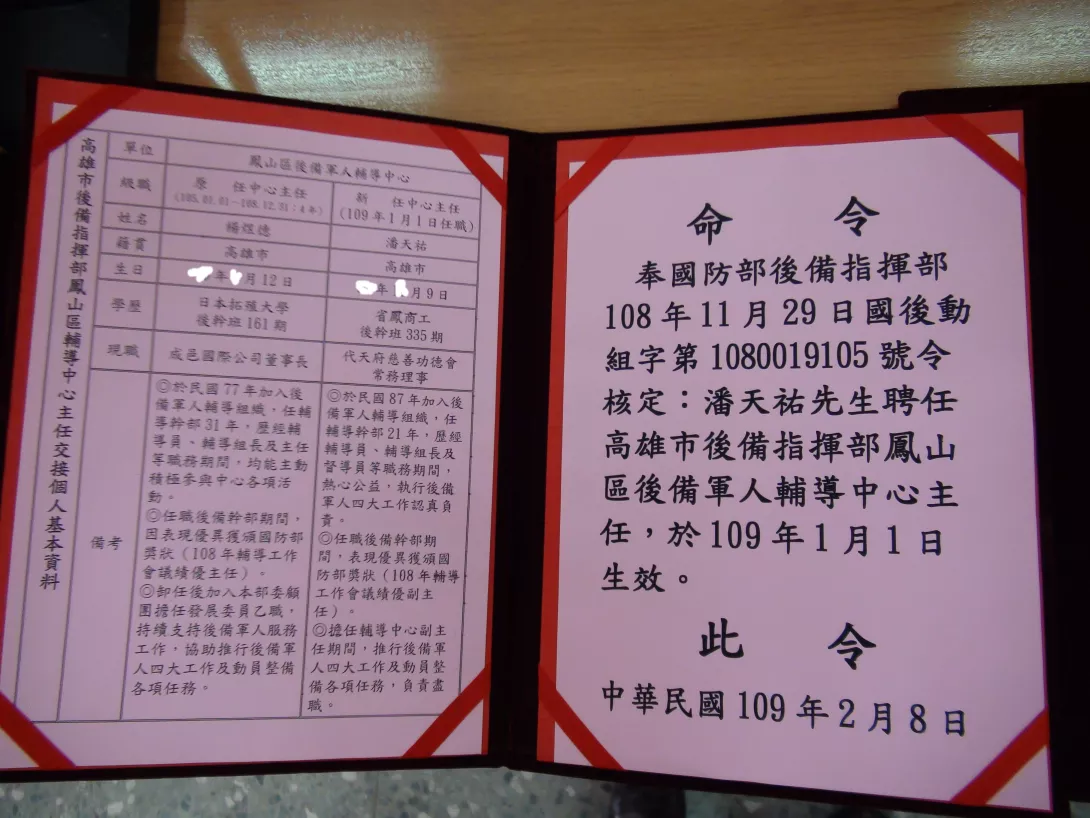 高雄市後備指揮部鳳山區輔導中心主任交接個人基本資料
單位
鳳山區後備軍人輔導中心
級職
原 任中心主任
(105.01.01－108.12.31：4年)
新 任中心主任
(109年1月1日任職)
姓名
楊煜德
潘天祐
籍貫
高雄市
高雄市
生日
年 月12日
年 月9日
學歷
日本拓殖大學
後幹班161期
省鳳商工
後幹班335期
現職
成邑國際公司董事長
代天府慈善功德會
常務理事
備考
◎於民國77年加入後
備軍人輔導組織，任輔
導幹部31年，歷經輔
導員、輔導組長及主任
等職務期間，均能主動
積極參與中心各項活
動。
◎任職後備幹部期間，
因表現優異獲頒國防部
獎狀（108年輔導工作
會議績優主任）。
◎卸任後加入本部委顧
團擔任發展委員乙職，
持續支持後備軍人服務
工作，協助推行後備軍
人四大工作及動員整備
各項任務。
◎於民國87年加入後
備軍人輔導組織，任
輔導幹部21年，歷經
輔導員、輔導組長及
督導員等職務期間，
熱心公益，執行後備
軍人四大工作認真負
責。
◎任職後備幹部期
間，表現優異獲頒國
防部獎狀（108年輔導
工作會議績優副主
任）。
◎擔任輔導中心副主
任期間，推行後備軍
人四大工作及動員整
備各項任務，負責盡
職。
命 令
奉國防部後備指揮部
108年11月29日國後動
組字第1080019105號令
核定：潘天祐先生聘任
高雄市後備指揮部鳳山
區後備軍人輔導中心主
任，於109年1月1日
生效。
此 令
中華民國109年2月8日